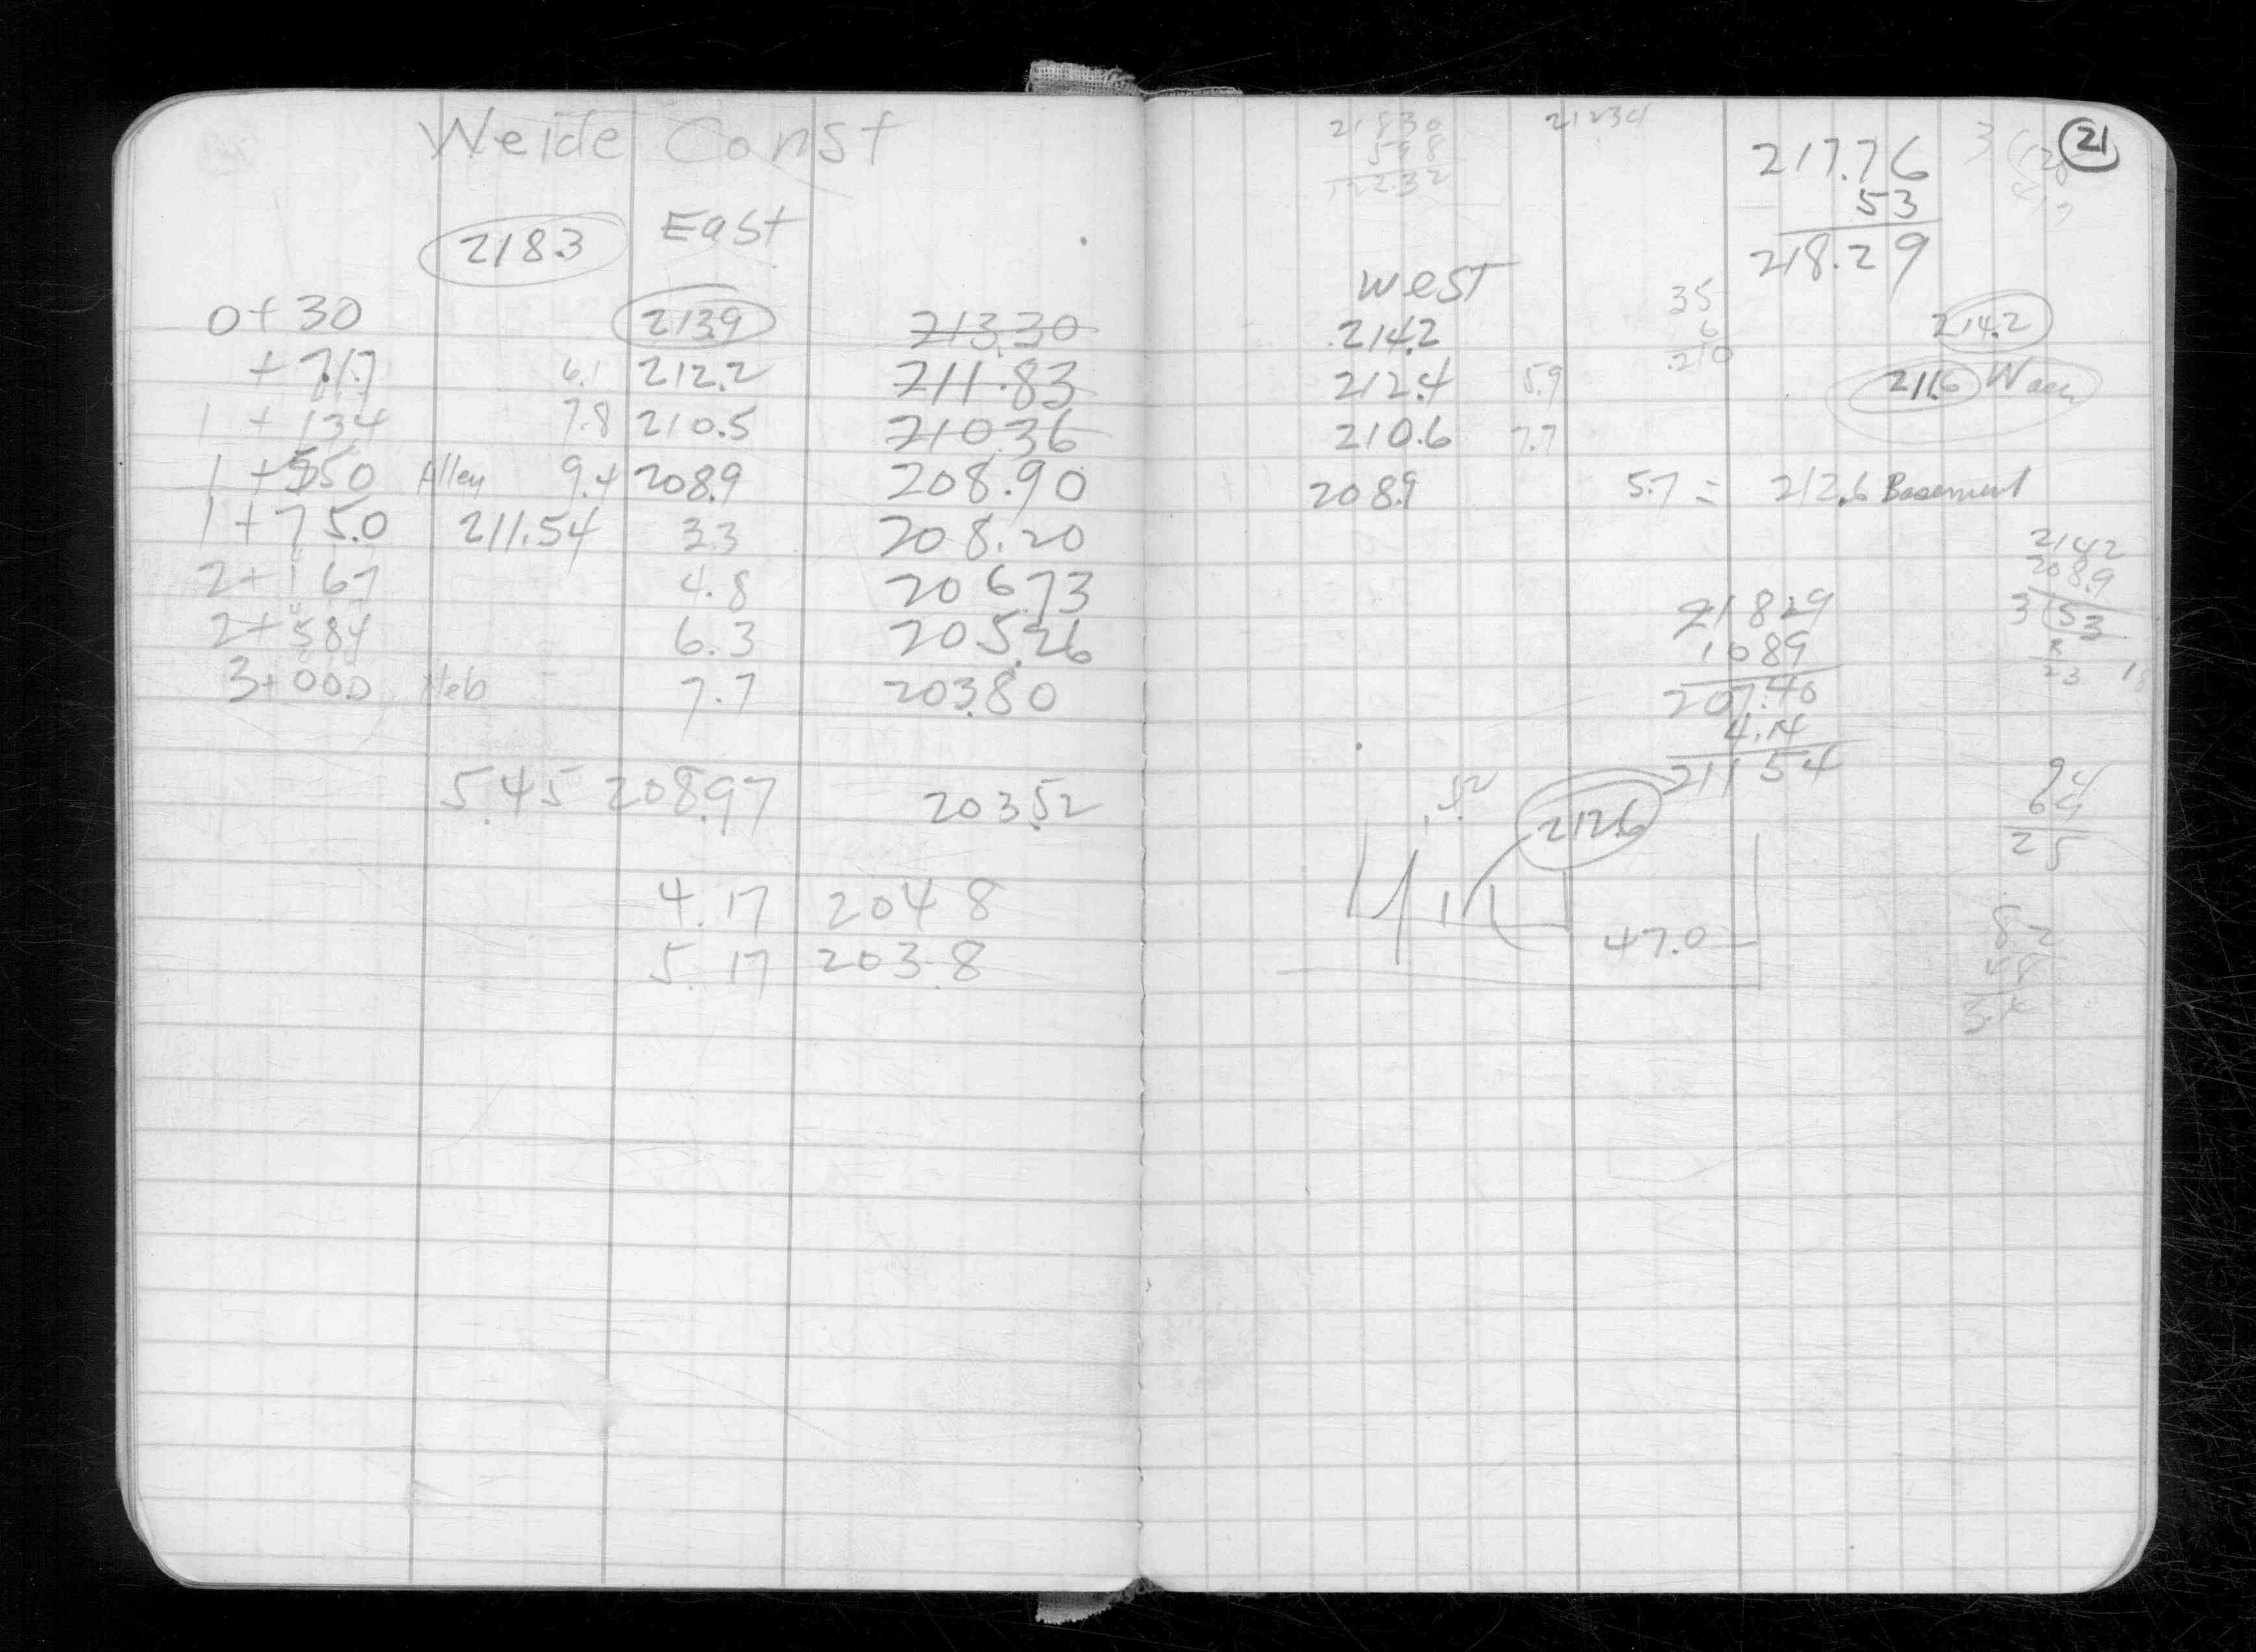 Weide Const
218.3 East
0+30 213.9 213.30
+71.7 6.1 212.2 211.83
1+13.4 7.8 210.5 210.36
1+55.0 Alley 9.4 208.9 208.90
1+75.0 211.54 3.3 208.20
2+16.7 4.8 206.73
2+58.4 6.3 205.26
3+00.0 Neb 7.7 203.80
5.45 208.97 203.52
4.17 204.8
5.17 203.8
21
218 30
5 98
212 34
217.76
53
218.29
West
214.2
212.4 5.9
210.6 7.7
208.9
35
6
.210
214.2
211.6
5.7 = 212.6 Basement
214.2
208.9
3 53
23
218 29
10 89
207.40
4.14
211 54
.52
212.6
47.0
94
69
25
82
48
34